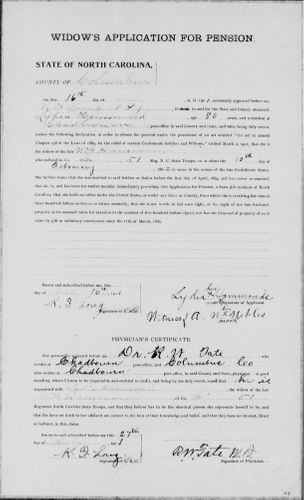 WIDOW'S APPLICATION FOR PENSION.
STATE OF NORTH CAROLINA,
COUNTY OF Columbus
On this 16th day of A. D. 190 , personally appeared before me,
C. S. C. in and for the State and County aforesaid,
Lydia Hammonds age 80 years, and a resident at
Chadbourn postoffice in said County and State, and who, being duly sworn,
makes the following declaration in order to obtain the pension under the provisions of an act entitled "An act to amend
Chapter 198 of the Laws of 1889, for the relief of certain Confederate Soldiers and Widows, ratified March 1901, that she
is the widow of the late
who enlisted in Co. 51 Reg. N. C. State Troops, on or about the 10th day
February 186 , to serve in the armies of the late Confederate States.
She further states that she was married to said Soldier or Sailor before the first day of April, 1865, and has never re-married,
that she is, and has been for twelve months immediately preceding this Application for Pension, a bona fide resident of North
Carolina; that she holds no office under the United States, or under any State or County, from which she is receiving the sum of
three hundred dollars as fees or salary annually; that she is not worth in her own right, or the right of her late husband,
property at its assessed value for taxation to the amount of five hundred dollars ($500), nor has she disposed of property of such
value by gift or voluntary conveyance since the 11th of March, 1885.
Sworn to and subscribed before me, this
day of 16th 190
R. F. Long
Signature of C. S. C.
her
Lydia X Hammonds
Signature of Applicant.
mark
Witness A. W. Noble
PHYSICIAN'S CERTIFICATE.
Also personally appeared before me Dr. R W Tate who
resides at Chadbourn postoffice, Columbus Co
resides at Chadbourn postoffice, in said County and State, physician in
good standing, whom I believe to be respectable and entitled to credit, and being by me duly sworn, says that he is
acquainted with
the widow of the late
51
Regiment North Carolina State Troops, and that they believe her to be the identical person she represents herself to be, and
that the facts set forth in her affidavit are correct to the best of their knowledge and belief, and they have no interest, direct
or indirect, in this claim.
Sworn to and subscribed before me, this 27th
day of 190
R. F. Long
Signature of C. S. C.
R W Tate M D
Signature of Physician.